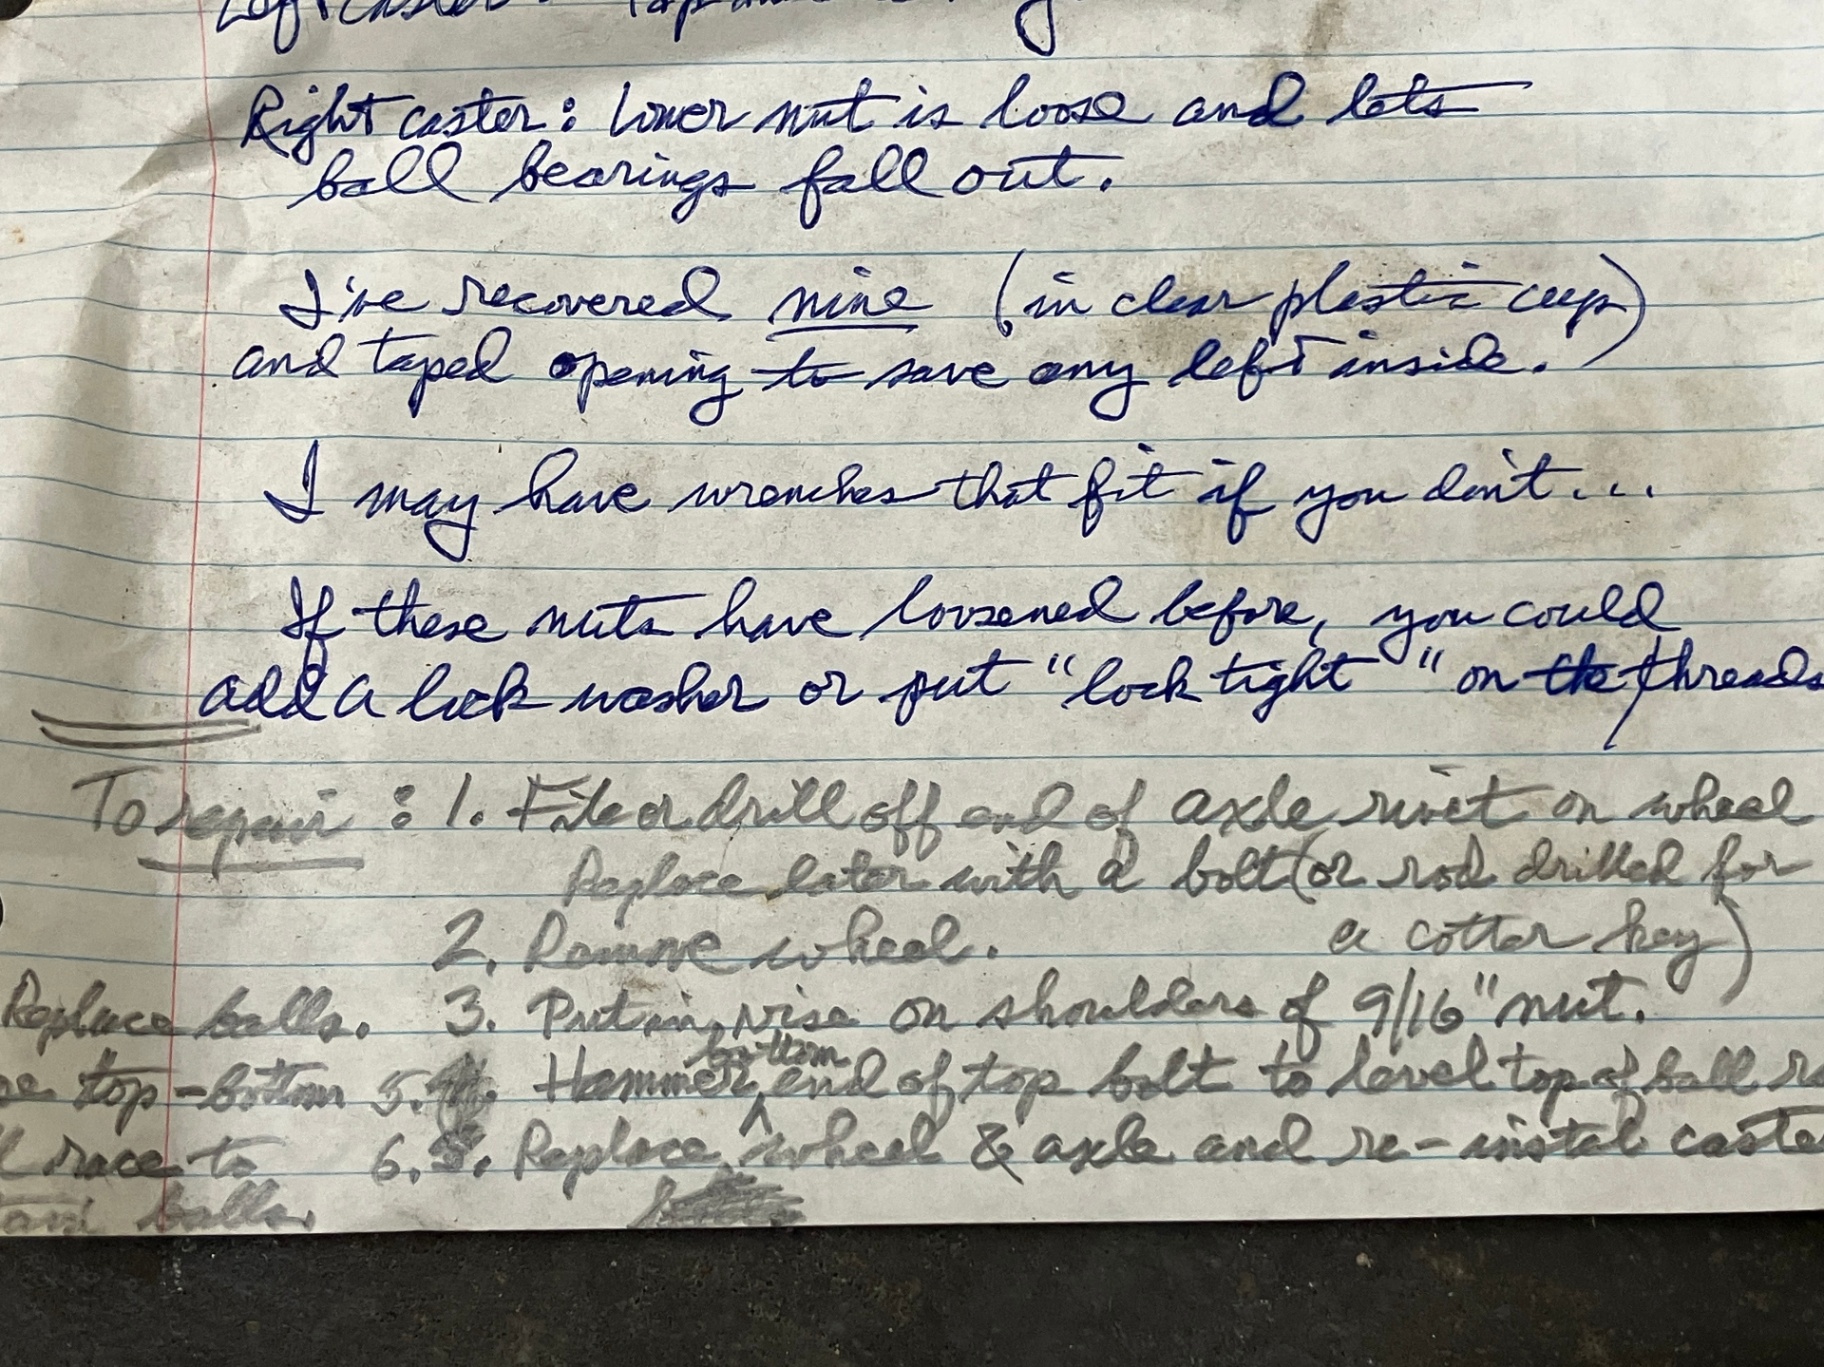 Left caster:
Right caster: Lower nut is loose and lets
ball bearings fall out.
I've recovered nine (in clear plastic cup)
and taped opening to save any left inside.
I may have wrenches that fit if you don't...
If these nuts have loosened before, you could
add a lock washer or put "lock tight" on the threads
To repair: 1. File or drill off end of axle rivet on wheel
Replace later with a bolt (or rod drilled for
a cotter key)
2. Remove wheel.
3. Put in vise on shoulders of 9/16" nut.
Replace balls.
top-bottom
race to
balls.
5. Hammer bottom end of top bolt to level top of ball
6. Replace wheel & axle and re-instal caste